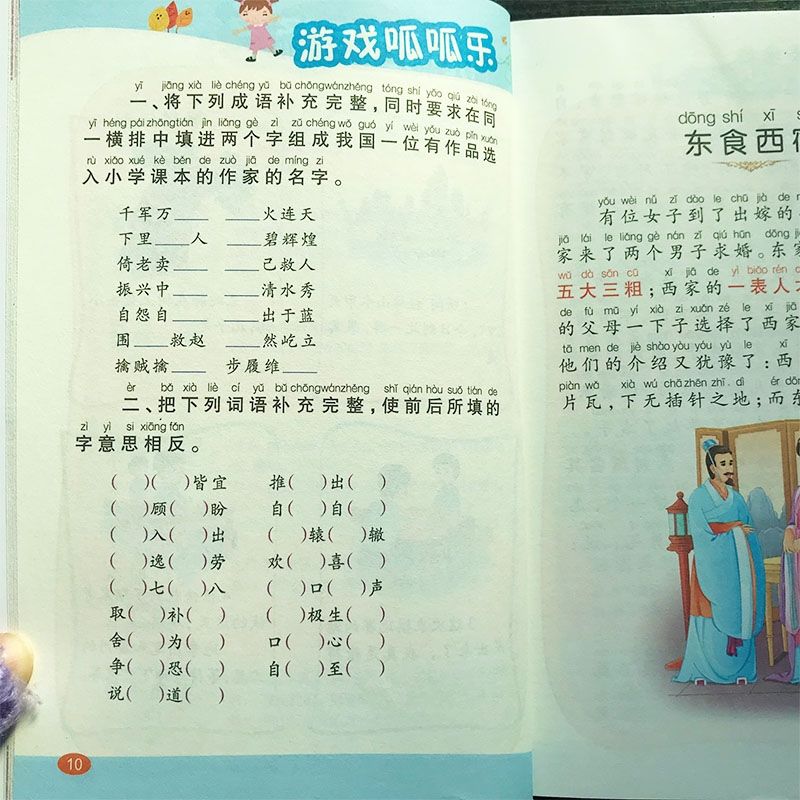 游戏呱呱乐
yī jiāng xià liè chéng yǔ bǔ chōng wán zhěng tóng shí yāo qiú zài tóng
一、将下列成语补充完整,同时要求在同
yī héng pái zhōng tián jìn liǎng gè zì zǔ chéng wǒ guó yí wèi yǒu zuò pǐn xuǎn
一横排中填进两个字组成我国一位有作品选
rù xiǎo xué kè běn de zuò jiā de míng zi
入小学课本的作家的名字。
千军万____ ____火连天
下里____人 ____碧辉煌
倚老卖____ ____己救人
振兴中____ ____清水秀
自怨自____ ____出于蓝
围____救赵 ____然屹立
擒贼擒____ 步履维____
èr bǎ xià liè cí yǔ bǔ chōng wán zhěng shǐ qián hòu suǒ tián de
二、把下列词语补充完整,使前后所填的
zì yì si xiāng fǎn
字意思相反。
( )( )皆宜 推( )出( )
( )顾( )盼 自( )自( )
( )入( )出 ( )辕( )辙
( )逸( )劳 欢( )喜( )
( )七( )八 ( )口( )声
取( )补( ) ( )极生( )
舍( )为( ) 口( )心( )
争( )恐( ) 自( )至( )
说( )道( )
10
dōng shí xī
东食西宿
yǒu wèi nǚ zǐ dào le chū jià de
有位女子到了出嫁的
jiā lái le liǎng gè nán zǐ qiú hūn dōng
家来了两个男子求婚。东家
wǔ dà sān cū xī jiā de yì biǎo rén
五大三粗;西家的一表人
de fù mǔ yí xià zi xuǎn zé le xī
的父母一下子选择了西家
tā men de jiè shào yòu yóu yù le xī
他们的介绍又犹豫了:西
piàn wǎ xià wú chā zhēn zhī dì ér dōng
片瓦,下无插针之地;而东